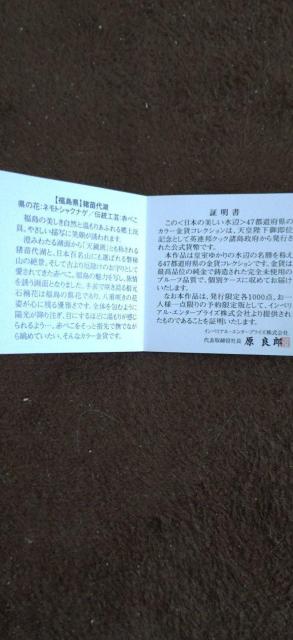 【福島県】猪苗代湖
県の花:ネモトシャクナゲ／伝統工芸:赤べこ
福島の美しき自然と温もりあふれる郷土玩
具。やさしい描写に笑顔が誘われます。
澄みわたる湖面から「天鏡湖」とも称される
猪苗代湖と、日本百名山にも選ばれる磐梯
山の絶景。そして古より厄除けのお守りとして
愛されてきた赤べこ。福島の魅力を写し、旅情
を誘う画面となりました。手前で咲き語る根元
石楠花は福島の県花であり、八重咲きの花
姿が心に残る優雅さです。全体を包むように
陽光が降り注ぎ、目にするほどに温もりが感じ
られるよう…。赤べこをそっと指先で撫でなが
ら眺めていたい、そんなカラー金貨です。
証明書
この＜日本の美しい水辺＞47都道府県の
カラー金貨コレクションは、天皇陛下御即位
記念として英連邦クック諸島政府から発行さ
れた公式貨幣です。
本作品は皇室ゆかりの水辺の名勝を称え
る47都道府県の金貨コレクションです。金貨は
最高品位の純金で鋳造された完全未使用の
プルーフ品質で、個別ケースに収めてお届け
いたします。
なお本作品は、発行限定各1000点、お一
人様一点限りの予約限定版として、インペリ
アル・エンタープライズ株式会社より提供され
たものであることを証明いたします。
インペリアル・エンタープライズ株式会社
代表取締役社長 原 良郎